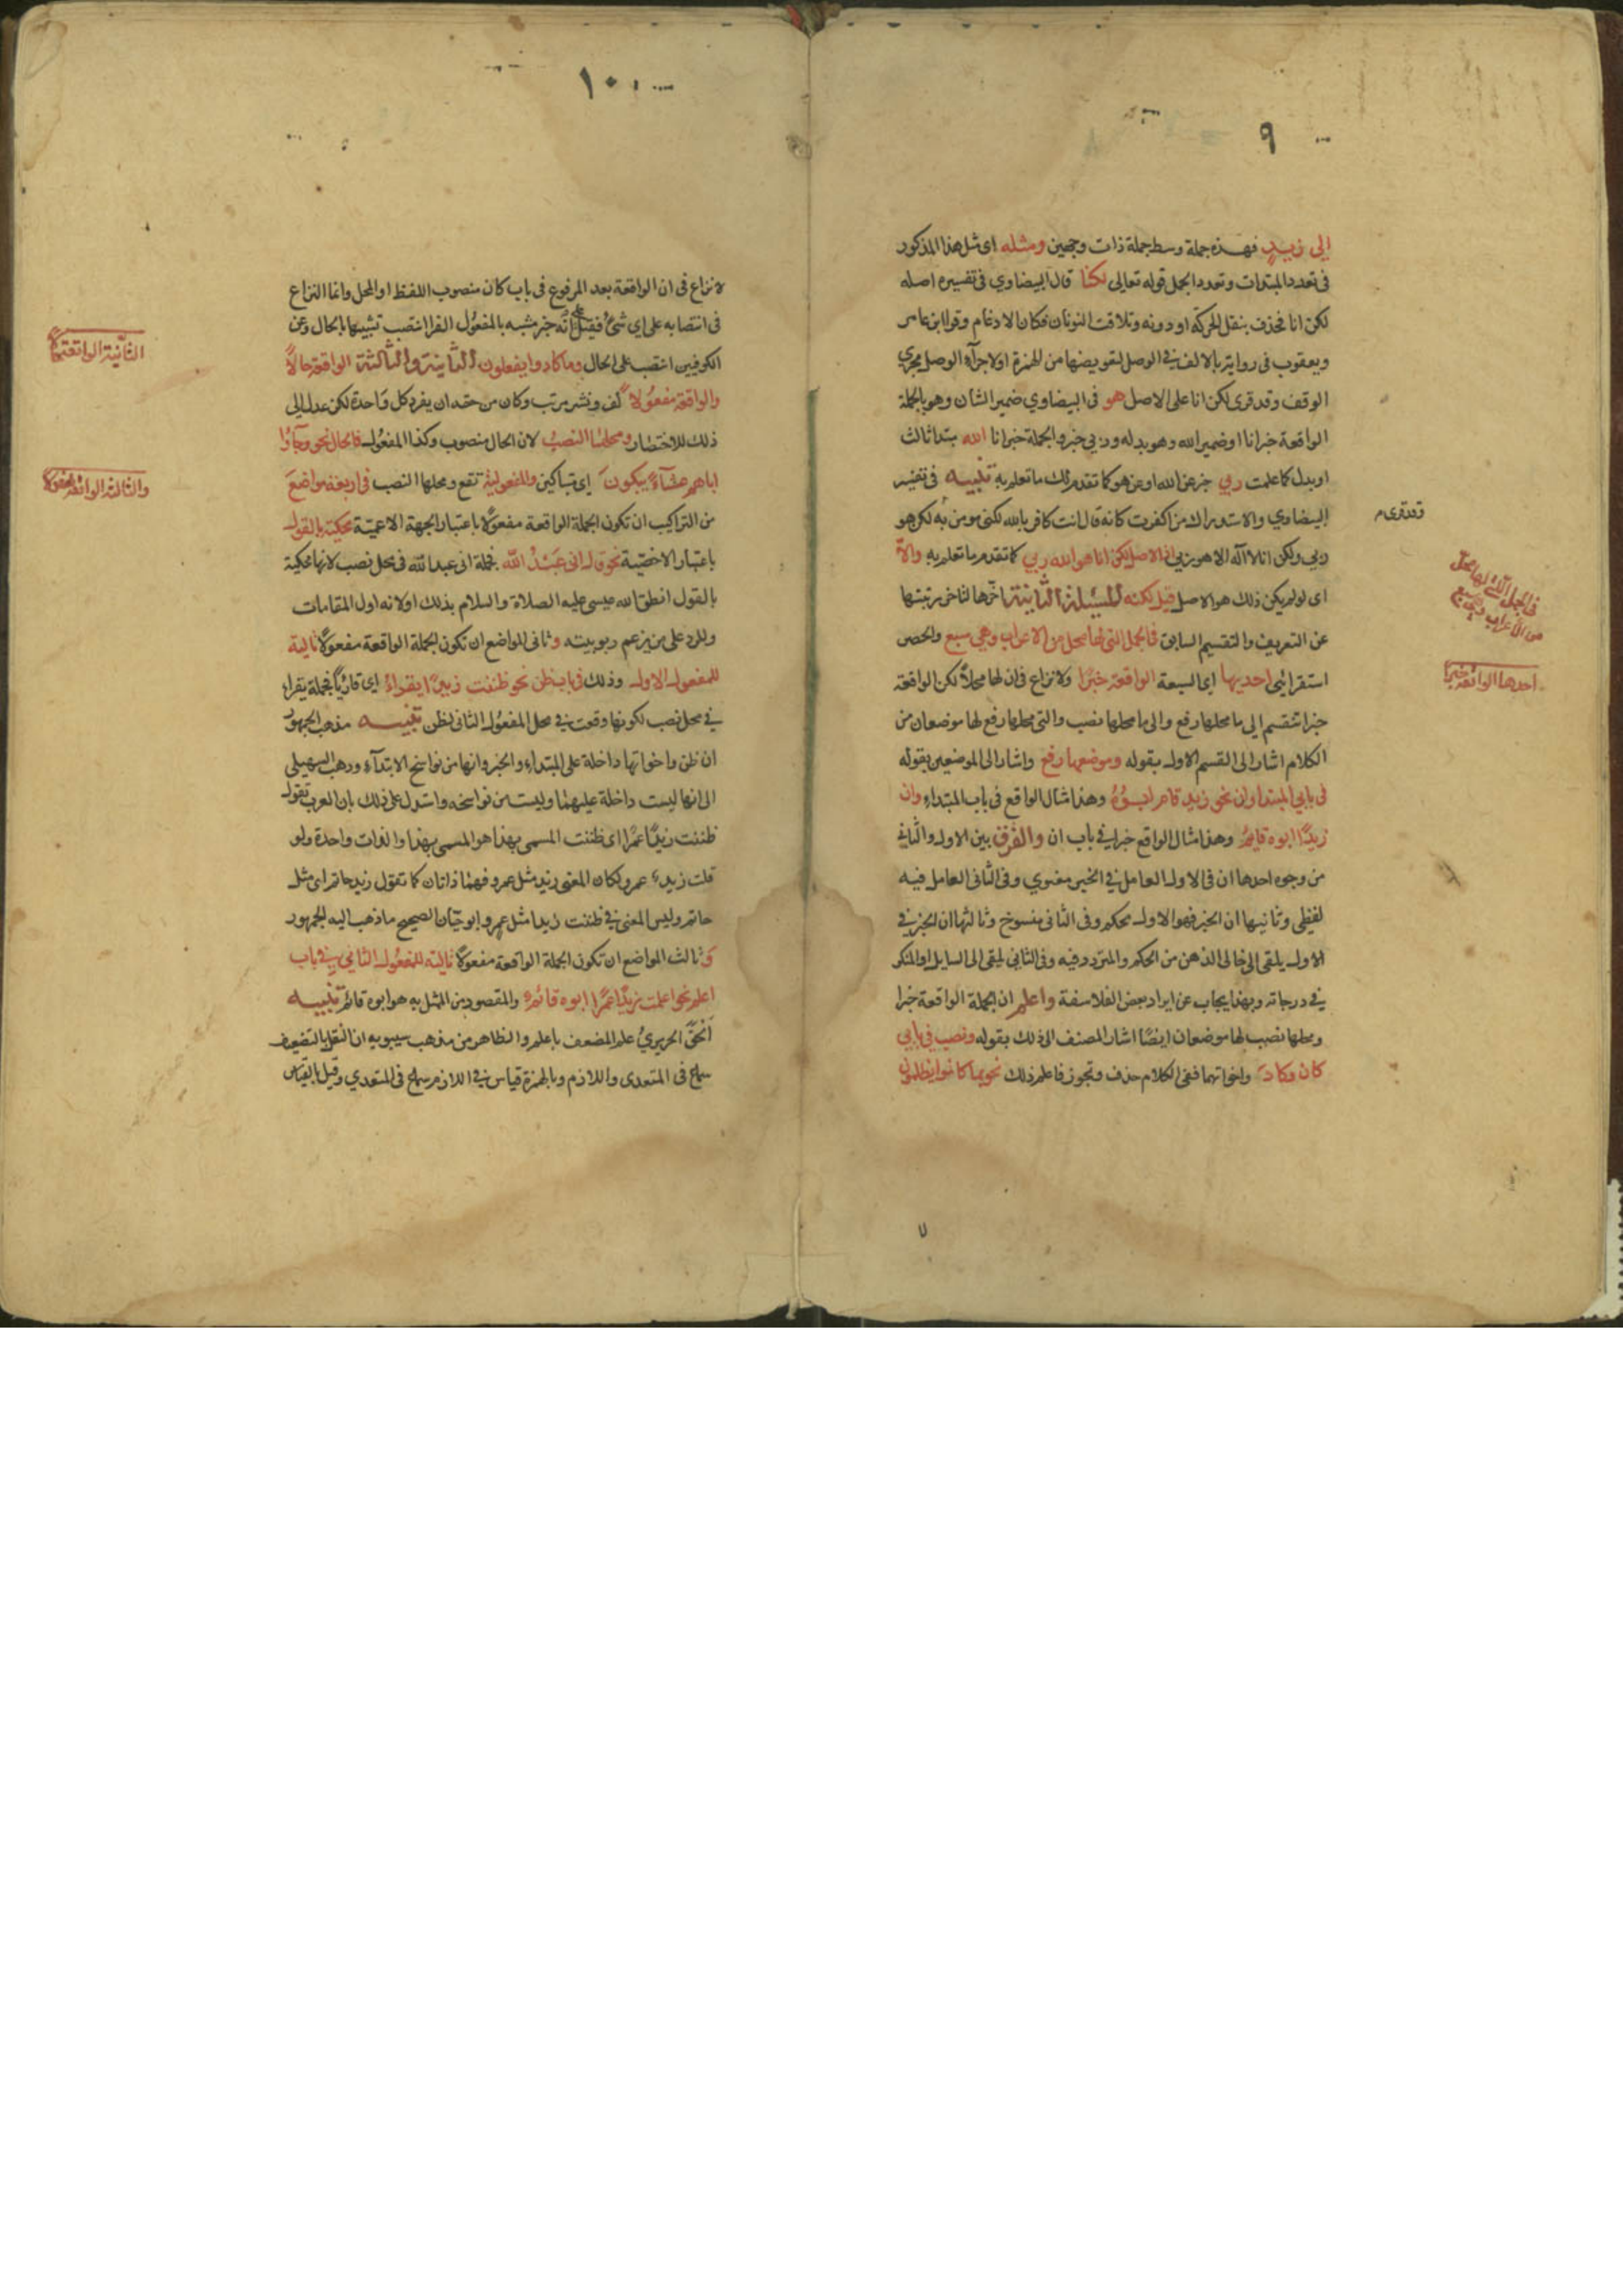 ٩
الى زيد فهذه جملة وسط جملة ذات وجهين ومثله اى مثل هذا المذكور
فى تعدد المبتدات وتعدد الجمل قوله تعالى لكنا قال البيضاوي فى تفسيره اصله
لكن انا فحذف بنقل الحركة او دونه وتلاقت النونان فكان الادغام وقرا ابن عامر
ويعقوب فى رواية بالالف في الوصل لتعويضها من الهمزة او لاجرآء الوصل مجرى
الوقف وقد قرى لكن انا على الاصل هو فى البيضاوي ضمير الشان وهو بالجملة
الواقعة خبر انا او ضمير الله وهو بدله وربي خبره والجملة خبر انا الله مبتدا ثالث
او بدل كما علمت ربي خبر عن الله او عن هو كما تقدم لك ما تعلم به تنبيه فى تفسير
البيضاوي والاستدراك من اكفرت كانه قال انت كافر بالله لكنى مومن به لكن هو
ربي ولكن انا لا اله الا هو ربي اذ الاصل لكن انا هو الله ربي كما تقدم ما تعلم به والا
اى لو لم يكن ذلك هو الاصل قيل لكنه المسئلة الثانية اخرها لتاخر رتبتها
عن التعريف والتقسيم السابق فى الجمل التى لها محل من الاعراب وهي سبع والحصر
استقرائي احديها اى السبعة الواقعة خبرا ولا نزاع فى ان لها محلا لكن الواقعة
خبرا تنقسم الى ما محلها رفع والى ما محلها نصب والتى محلها رفع لها موضعان من
الكلام اشار الى القسم الاول بقوله وموضعها رفع واشار الى الموضعين بقوله
فى بابي المبتدا وان نحو زيد قام ابوه وهذا مثال الواقع فى باب المبتداء وان
زيدا ابوه قايم وهذا مثال الواقع خبرا في باب ان والفرق بين الاول والثاني
من وجوه احدها ان فى الاول العامل في الخبر معنوي وفى الثانى العامل فيه
لفظي وثانيها ان الخبر فهو الاول محكم وفى الثانى منسوخ وثالثها ان الخبر في
الاول يلقى الى خالى الذهن من الحكم والمتردد فيه وفى الثاني يلقى الى السايل او المنكر
في درجاته وبهذا يجاب عن ايراد بعض الفلاسفة واعلم ان الجملة الواقعة خبرا
ومحلها نصب لها موضعان ايضا اشار المصنف الى ذلك بقوله ونصب في بابي
كان وكاد واخواتهما ففى الكلام حذف وتجوز فاعلم ذلك نحو بما كانوا يظلمون
وقد قرى م
فى الجمل التى لها محل
من الاعراب وهي سبع
احدها الواقعة خبرا
١٠
لا نزاع فى ان الواقعة بعد المرفوع فى باب كان منصوب اللفظ او المحل وانما النزاع
فى انتصابه على اي شئ فقيل على انه خبر مشبه بالمفعول الفرا انتصب تشبيها بالحال وعن
الكوفيين انتصب على الحال وما كادوا يفعلون الثانية والثالثة الواقعة حالا
والواقعة مفعولا لف ونشر مرتب وكان من حقه ان يفرد كل واحدة لكن عدل الى
ذلك للاختصار ومحلهما النصب لان الحال منصوب وكذا المفعول فالحال نحو وجاؤا
اباهم عشآء يبكون اى متباكين والمفعولية تقع ومحلها النصب فى اربعة مواضع
من التراكيب ان تكون الجملة الواقعة مفعولا باعتبار الجهة الاعمية محكية بالقول
باعتبار الاخصية نحو قال انى عبد الله فجملة انى عبد الله فى محل نصب لانها محكية
بالقول انطق الله عيسى عليه الصلاة والسلام بذلك اولا لانه اول المقامات
وللرد على من يزعم ربوبيته وثانى المواضع ان تكون الجملة الواقعة مفعولا تالية
للمفعول الاول وذلك فى باب ظن نحو ظننت زيدا يقراء اى قارئا فجملة يقراء
في محل نصب لكونها وقعت في محل المفعول الثانى لظن تنبيه مذهب الجمهور
ان ظن واخواتها داخلة على المبتداء والخبر وانها من نواسخ الابتدآء وذهب السهيلي
الى انها ليست داخلة عليهما وليست من نواسخه واستدل على ذلك بان العرب تقول
ظننت زيدا عمرا اى ظننت المسمى بهذا هو المسمى بهذا والذات واحدة ولو
قلت زيد عمرو لكان المعنى زيد مثل عمرو فهما ذاتان كما تقول زيد حاتم اى مثل
حاتم وليس المعنى في ظننت زيدا مثل عمرو ابو حيان الصحيح ما ذهب اليه الجمهور
وثالث المواضع ان تكون الجملة الواقعة مفعولا تالية للمفعول الثانى في باب
اعلم نحو اعلمت زيدا عمرا ابوه قائم والمقصود من المثل به هو ابوه قائم تنبيه
الحق الحريري علم المضعف باعلم والظاهر من مذهب سيبويه ان النقل بالتضعيف
سماع فى المتعدى واللازم وبالهمزة قياس في اللازم سماع فى المتعدي وقيل بالقياس
الثانية الواقعة حالا
والثالثة الواقعة مفعولا